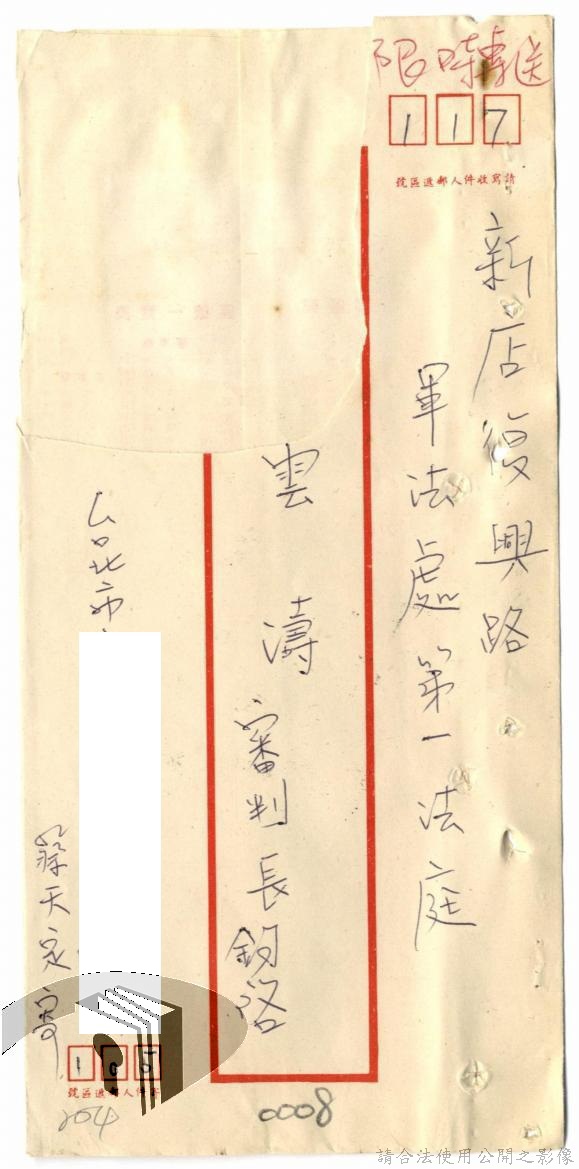 限時專送
117
請寫收件人郵遞區號
新店復興路
軍法處第一法庭
雲濤審判長鈞啓
台北市
蔡天定寄
105
寄件人郵遞區號
204
0008
請合法使用公開之影像